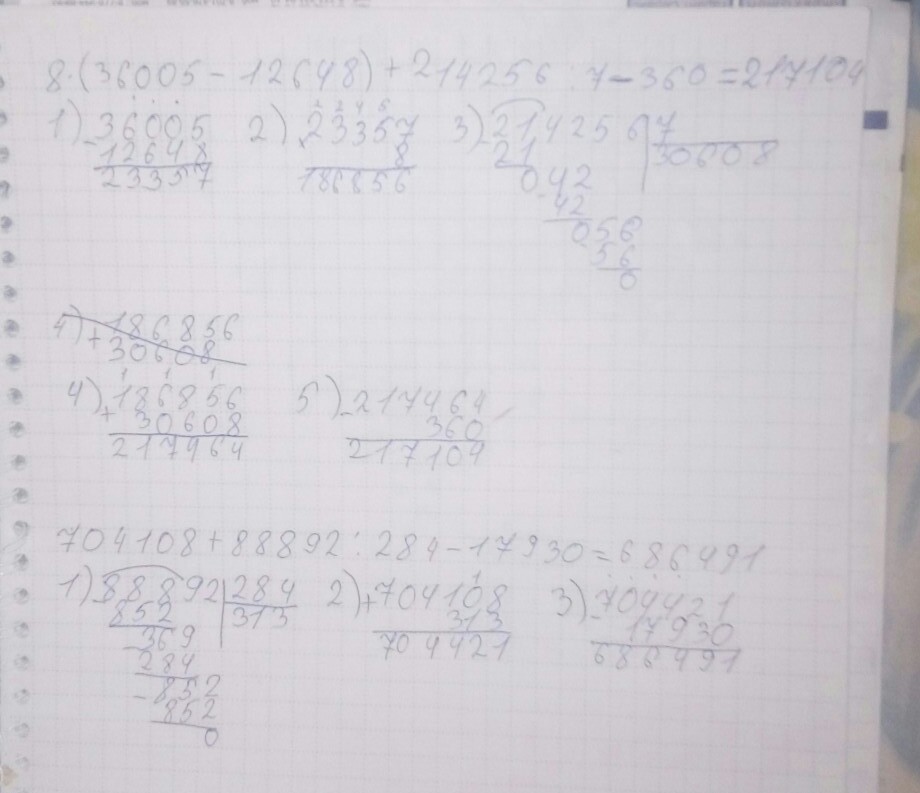 8·(36005-12648)+214256:7-360=217104
1) 36005 2) 23357 3) 214256 7
- 12648 8 21 30608
23357 186856 042
42
056
56
0
4) + 186856
30608
4) + 186856 5) - 217464
30608 360
217464 217104
704108+88892:284-17930=686491
1) 88892 284 2) + 704108 3) - 704421
852 313 313 17930
- 369 704421 686491
284
- 852
852
0